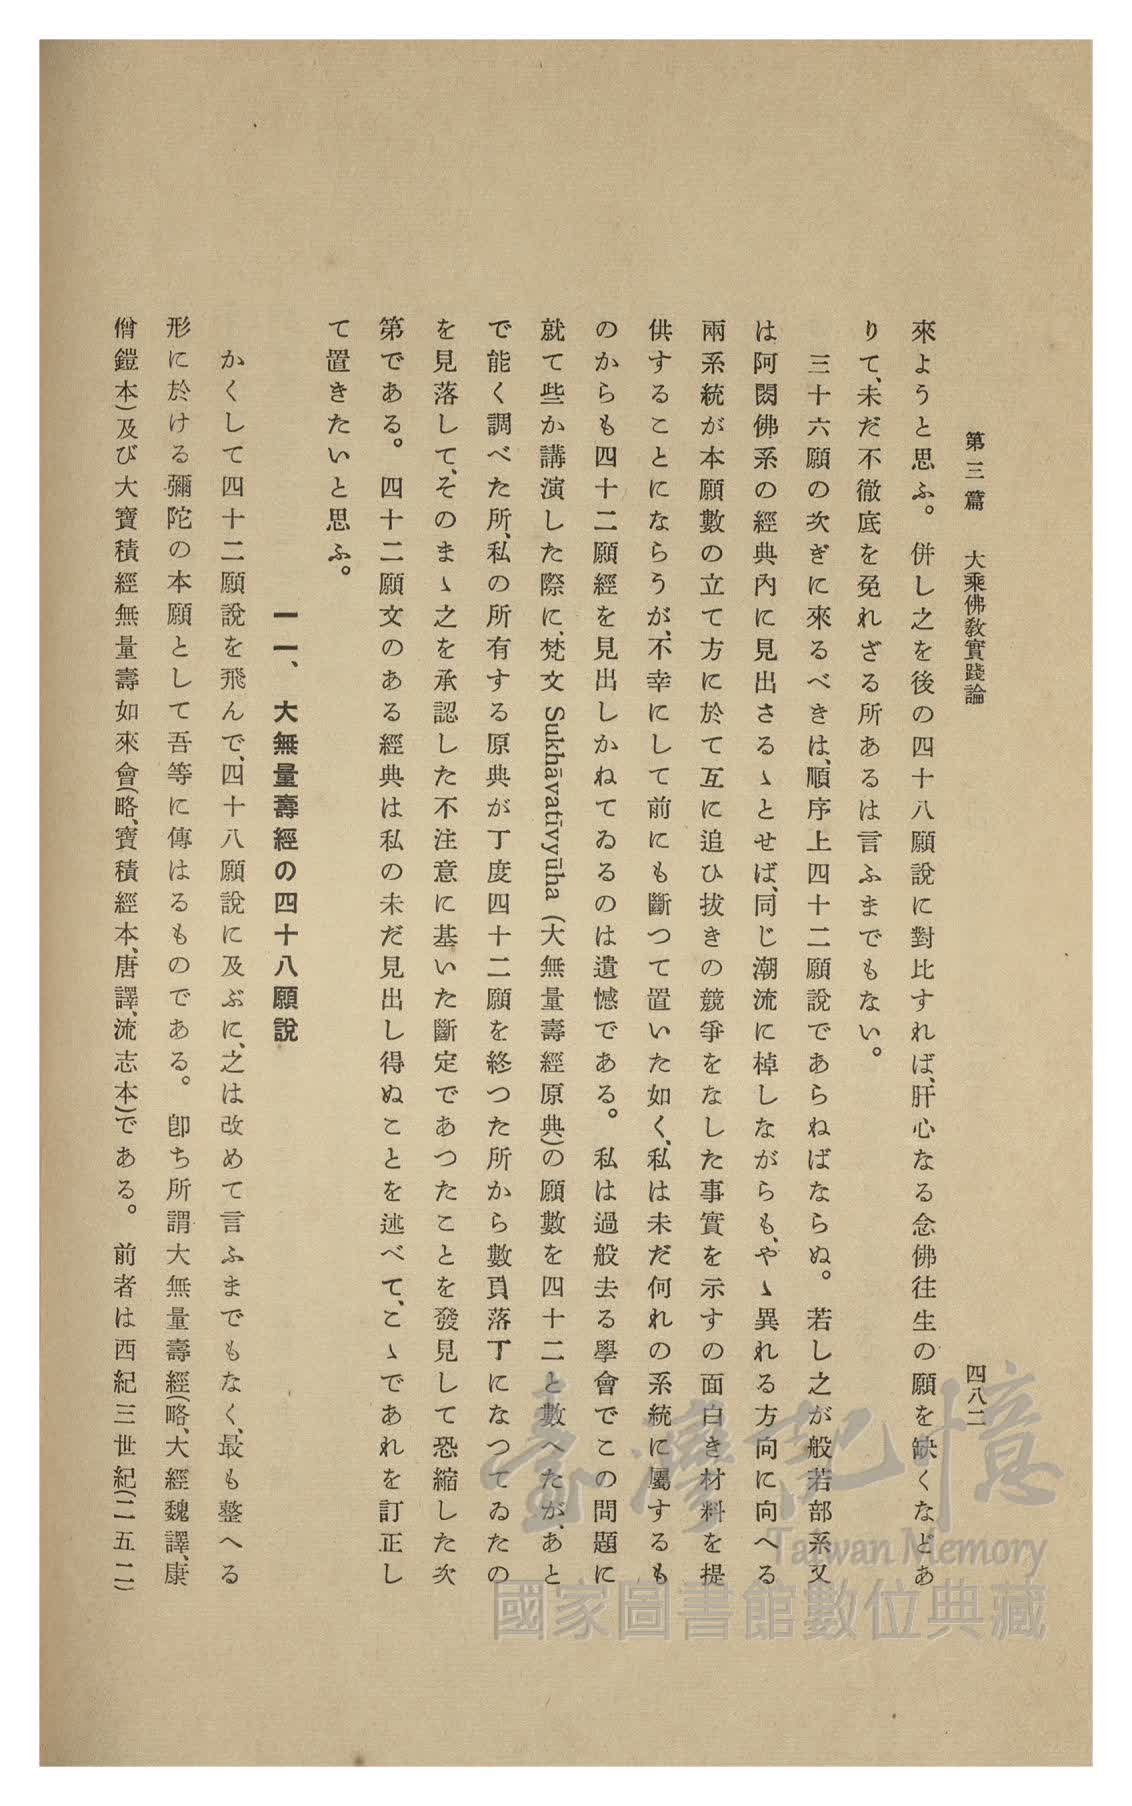 第三篇　大乘佛敎實踐論　四八二
來ようと思ふ。併し之を後の四十八願說に對比すれば、肝心なる念佛往生の願を缺くなどあ
りて、未だ不徹底を免れざる所あるは言ふまでもない。
三十六願の次ぎに來るべきは、順序上四十二願說であらねばならぬ。若し之が般若部系又
は阿閦佛系の經典內に見出さるゝとせば、同じ潮流に棹しながらも、やゝ異れる方向に向へる
兩系統が本願數の立て方に於て互に追ひ拔きの競爭をなした事實を示すの面白き材料を提
供することにならうが、不幸にして前にも斷つて置いた如く、私は未だ何れの系統に屬するも
のからも四十二願經を見出しかねてゐるのは遺憾である。私は過般去る學會でこの問題に
就て些か講演した際に、梵文 Sukhāvatīvyūha (大無量壽經原典)の願數を四十二と數へたが、あと
で能く調べた所、私の所有する原典が丁度四十二願を終つた所から數頁落丁になつてゐたの
を見落して、そのまゝ之を承認した不注意に基いた斷定であつたことを發見して恐縮した次
第である。四十二願文のある經典は私の未だ見出し得ぬことを述べて、こゝであれを訂正し
て置きたいと思ふ。
一一、大無量壽經の四十八願說
かくして四十二願說を飛んで、四十八願說に及ぶに、之は改めて言ふまでもなく、最も整へる
形に於ける彌陀の本願として吾等に傳はるものである。卽ち所謂大無量壽經(略、大經魏譯、康
僧鎧本)及び大寶積經無量壽如來會(略、寶積經本、唐譯、流志本)である。前者は西紀三世紀(二五二)
臺灣記憶
Taiwan Memory
國家圖書館數位典藏